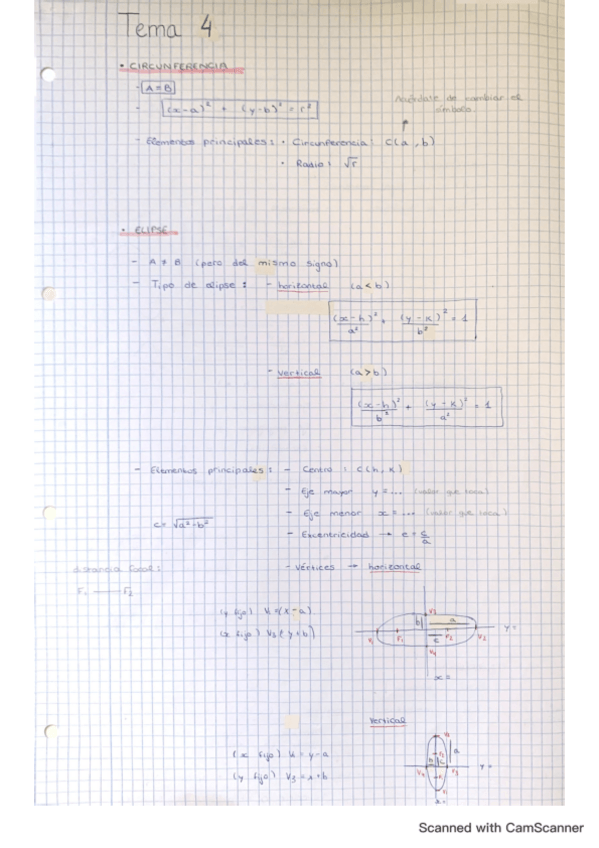 Tema 4
• CIRCUNFERENCIA
- A = B
- (x-a)² + (y-b)² = r²
Acuérdate de cambiar el símbolo
- Elementos principales: • Circunferencia: C(a, b)
• Radio: √r
• ELIPSE
- A ≠ B (pero del mismo signo)
- Tipo de elipse: - horizontal (a < b)
(x-h)²/a² + (y-k)²/b² = 1
- vertical (a > b)
(x-h)²/b² + (y-k)²/a² = 1
- Elementos principales: - Centro: C(h, k)
- Eje mayor y = ... (valor que toca)
- Eje menor x = ... (valor que toca)
c = √a²-b²
- Excentricidad → e = c/a
distancia focal:
- vértices → horizontal
F₁ —— F₂
(y fijo) V₁ = (x - a)
(x fijo) V₃ (y + b)
V₃
b a
y =
V₁ F₁ c F₂ V₂
V₄
x =
vertical
(x fijo) V₁ = y - a
(y fijo) V₃ = x + b
a
y =
Scanned with CamScanner